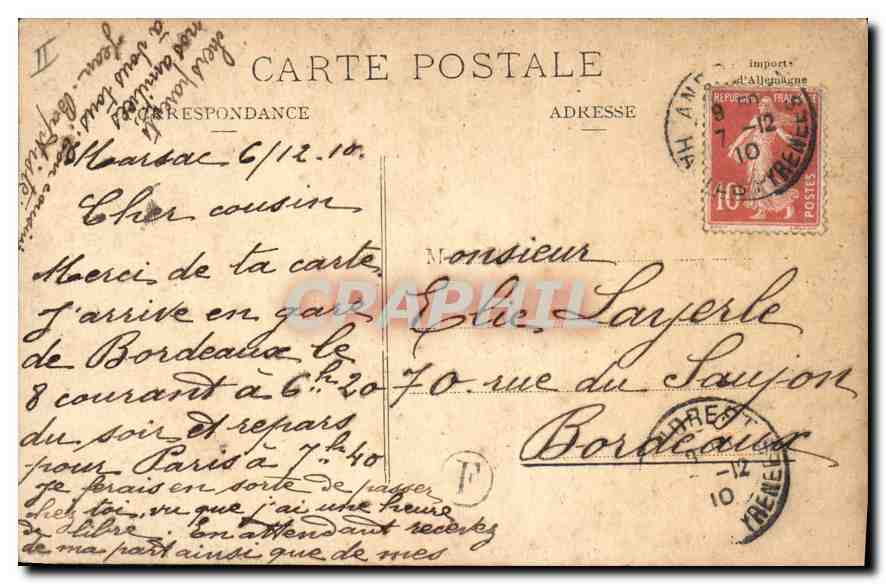 II
chers parents
nos amitiés
à vous tous
ton cousin
Jean-Baptiste
CARTE POSTALE
importe
d'Allemagne
CORRESPONDANCE
ADRESSE
REPUBLIQUE FRANCAISE
10
POSTES
7 -12
10
PYRENEES
Marsac 6/12.10.
Cher cousin
Merci de ta carte.
J'arrive en gare
de Bordeaux le
8 courant à 6h 20
du soir et repars
pour Paris à 7h 40
Je ferais en sorte de passer
chez toi, vu que j'ai une heure
de libre. En attendant recevez
de ma part ainsi que de mes
Monsieur
Elie Layerle
70 rue du Saujon
Bordeaux
F
-12
10
PYRENEES
CRAPHIL